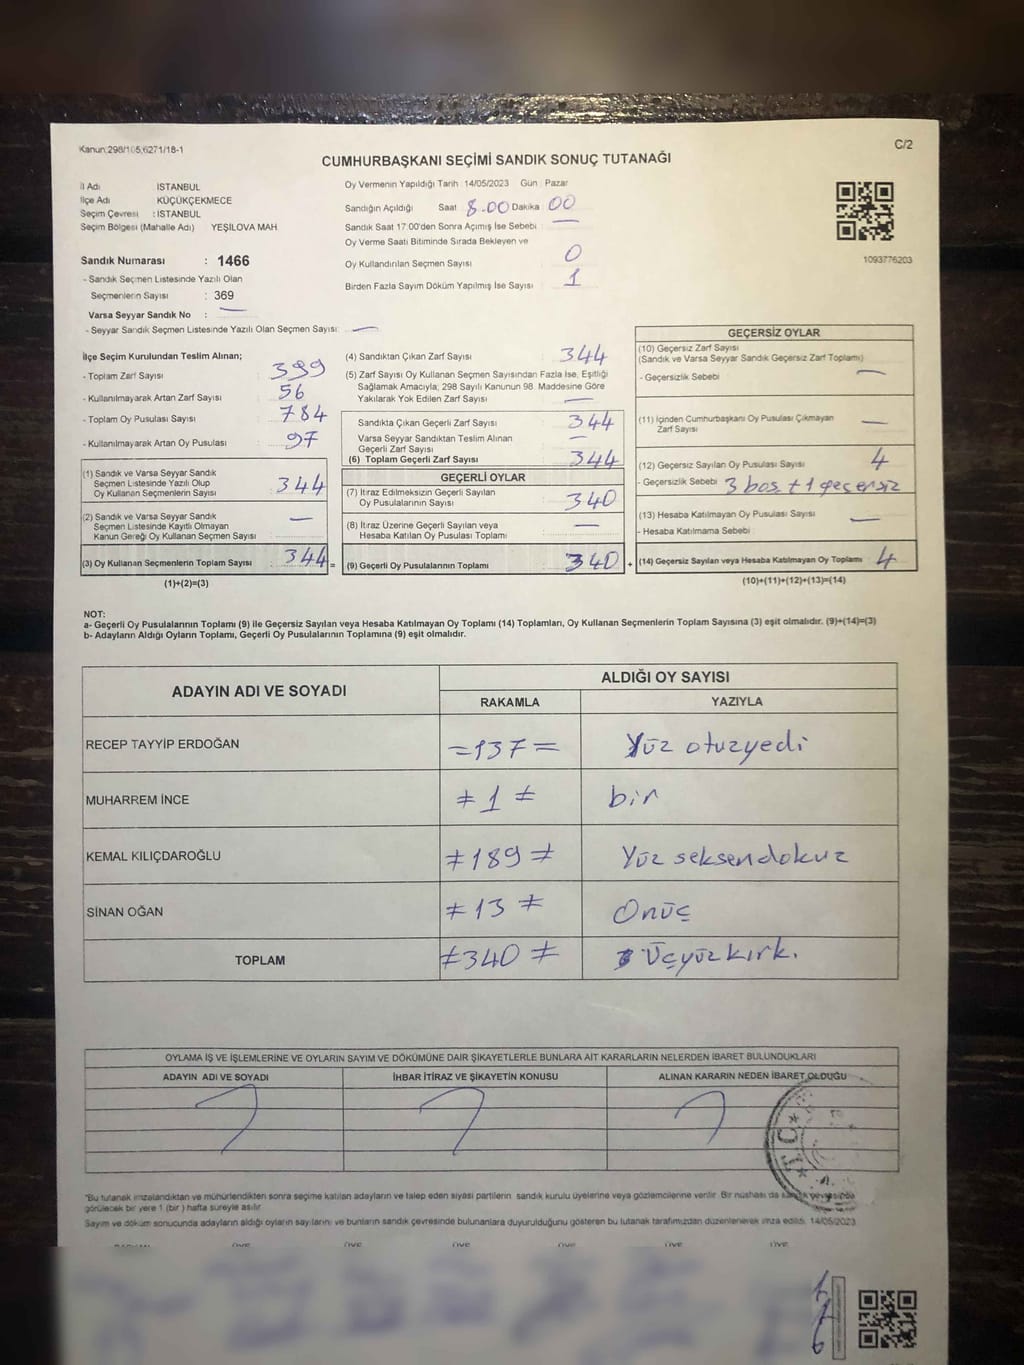 Kanun:298/105,6271/18-1
C/2
CUMHURBAŞKANI SEÇİMİ SANDIK SONUÇ TUTANAĞI
İl Adı İSTANBUL
İlçe Adı KÜÇÜKÇEKMECE
Seçim Çevresi : İSTANBUL
Seçim Bölgesi (Mahalle Adı) YEŞİLOVA MAH
Sandık Numarası : 1466
- Sandık Seçmen Listesinde Yazılı Olan
Seçmenlerin Sayısı : 369
Varsa Seyyar Sandık No : —
- Seyyar Sandık Seçmen Listesinde Yazılı Olan Seçmen Sayısı: —
Oy Vermenin Yapıldığı Tarih 14/05/2023 Gün Pazar
Sandığın Açıldığı Saat 8.00 Dakika 00
Sandık Saat 17:00'den Sonra Açımış İse Sebebi : —
Oy Verme Saati Bitiminde Sırada Bekleyen ve
Oy Kullandırılan Seçmen Sayısı : 0
Birden Fazla Sayım Döküm Yapılmış İse Sayısı : 1
1093776203
İlçe Seçim Kurulundan Teslim Alınan;
- Toplam Zarf Sayısı : 399
- Kullanılmayarak Artan Zarf Sayısı : 56
- Toplam Oy Pusulası Sayısı : 784
- Kullanılmayarak Artan Oy Pusulası : 97
(1) Sandık ve Varsa Seyyar Sandık
Seçmen Listesinde Yazılı Olup
Oy Kullanan Seçmenlerin Sayısı : 344
(2) Sandık ve Varsa Seyyar Sandık
Seçmen Listesinde Kayıtlı Olmayan
Kanun Gereği Oy Kullanan Seçmen Sayısı : —
(3) Oy Kullanan Seçmenlerin Toplam Sayısı : 344 =
(1)+(2)=(3)
(4) Sandıktan Çıkan Zarf Sayısı : 344
(5) Zarf Sayısı Oy Kullanan Seçmen Sayısından Fazla İse, Eşitliği
Sağlamak Amacıyla, 298 Sayılı Kanunun 98. Maddesine Göre
Yakılarak Yok Edilen Zarf Sayısı : —
Sandıkta Çıkan Geçerli Zarf Sayısı : 344
Varsa Seyyar Sandıktan Teslim Alınan
Geçerli Zarf Sayısı : —
(6) Toplam Geçerli Zarf Sayısı : 344
GEÇERLİ OYLAR
(7) İtiraz Edilmeksizin Geçerli Sayılan
Oy Pusulalarının Sayısı : 340
(8) İtiraz Üzerine Geçerli Sayılan veya
Hesaba Katılan Oy Pusulası Toplamı : —
(9) Geçerli Oy Pusulalarının Toplamı : 340 +
GEÇERSİZ OYLAR
(10) Geçersiz Zarf Sayısı
(Sandık ve Varsa Seyyar Sandık Geçersiz Zarf Toplamı)
- Geçersizlik Sebebi : —
(11) İçinden Cumhurbaşkanı Oy Pusulası Çıkmayan
Zarf Sayısı : —
(12) Geçersiz Sayılan Oy Pusulası Sayısı : 4
- Geçersizlik Sebebi 3 boş + 1 geçersiz
(13) Hesaba Katılmayan Oy Pusulası Sayısı : —
- Hesaba Katılmama Sebebi :
(14) Geçersiz Sayılan veya Hesaba Katılmayan Oy Toplamı : 4
(10)+(11)+(12)+(13)=(14)
NOT:
a- Geçerli Oy Pusulalarının Toplamı (9) ile Geçersiz Sayılan veya Hesaba Katılmayan Oy Toplamı (14) Toplamları, Oy Kullanan Seçmenlerin Toplam Sayısına (3) eşit olmalıdır. (9)+(14)=(3)
b- Adayların Aldığı Oyların Toplamı, Geçerli Oy Pusulalarının Toplamına (9) eşit olmalıdır.
ADAYIN ADI VE SOYADI
ALDIĞI OY SAYISI
RAKAMLA YAZIYLA
RECEP TAYYİP ERDOĞAN =137= Yüz otuzyedi
MUHARREM İNCE ≠ 1 ≠ bir
KEMAL KILIÇDAROĞLU ≠189≠ Yüz seksendokuz
SİNAN OĞAN ≠13≠ Onüç
TOPLAM ≠340≠ Üçyüzkırk.
OYLAMA İŞ VE İŞLEMLERİNE VE OYLARIN SAYIM VE DÖKÜMÜNE DAİR ŞİKAYETLERLE BUNLARA AİT KARARLARIN NELERDEN İBARET BULUNDUKLARI
ADAYIN ADI VE SOYADI İHBAR İTİRAZ VE ŞİKAYETİN KONUSU ALINAN KARARIN NEDEN İBARET OLDUĞU
T.C.
"Bu tutanak imzalandıktan ve mühürlendikten sonra seçime katılan adayların ve talep eden siyasi partilerin sandık kurulu üyelerine veya gözlemcilerine verilir. Bir nüshası da sandık çevresinde
görülecek bir yere 1 (bir) hafta süreyle asılır
Sayım ve döküm sonucunda adayların aldığı oyların sayılarını ve bunların sandık çevresinde bulunanlara duyurulduğunu gösteren bu tutanak tarafımızdan düzenlenerek imza edildi. 14/05/2023